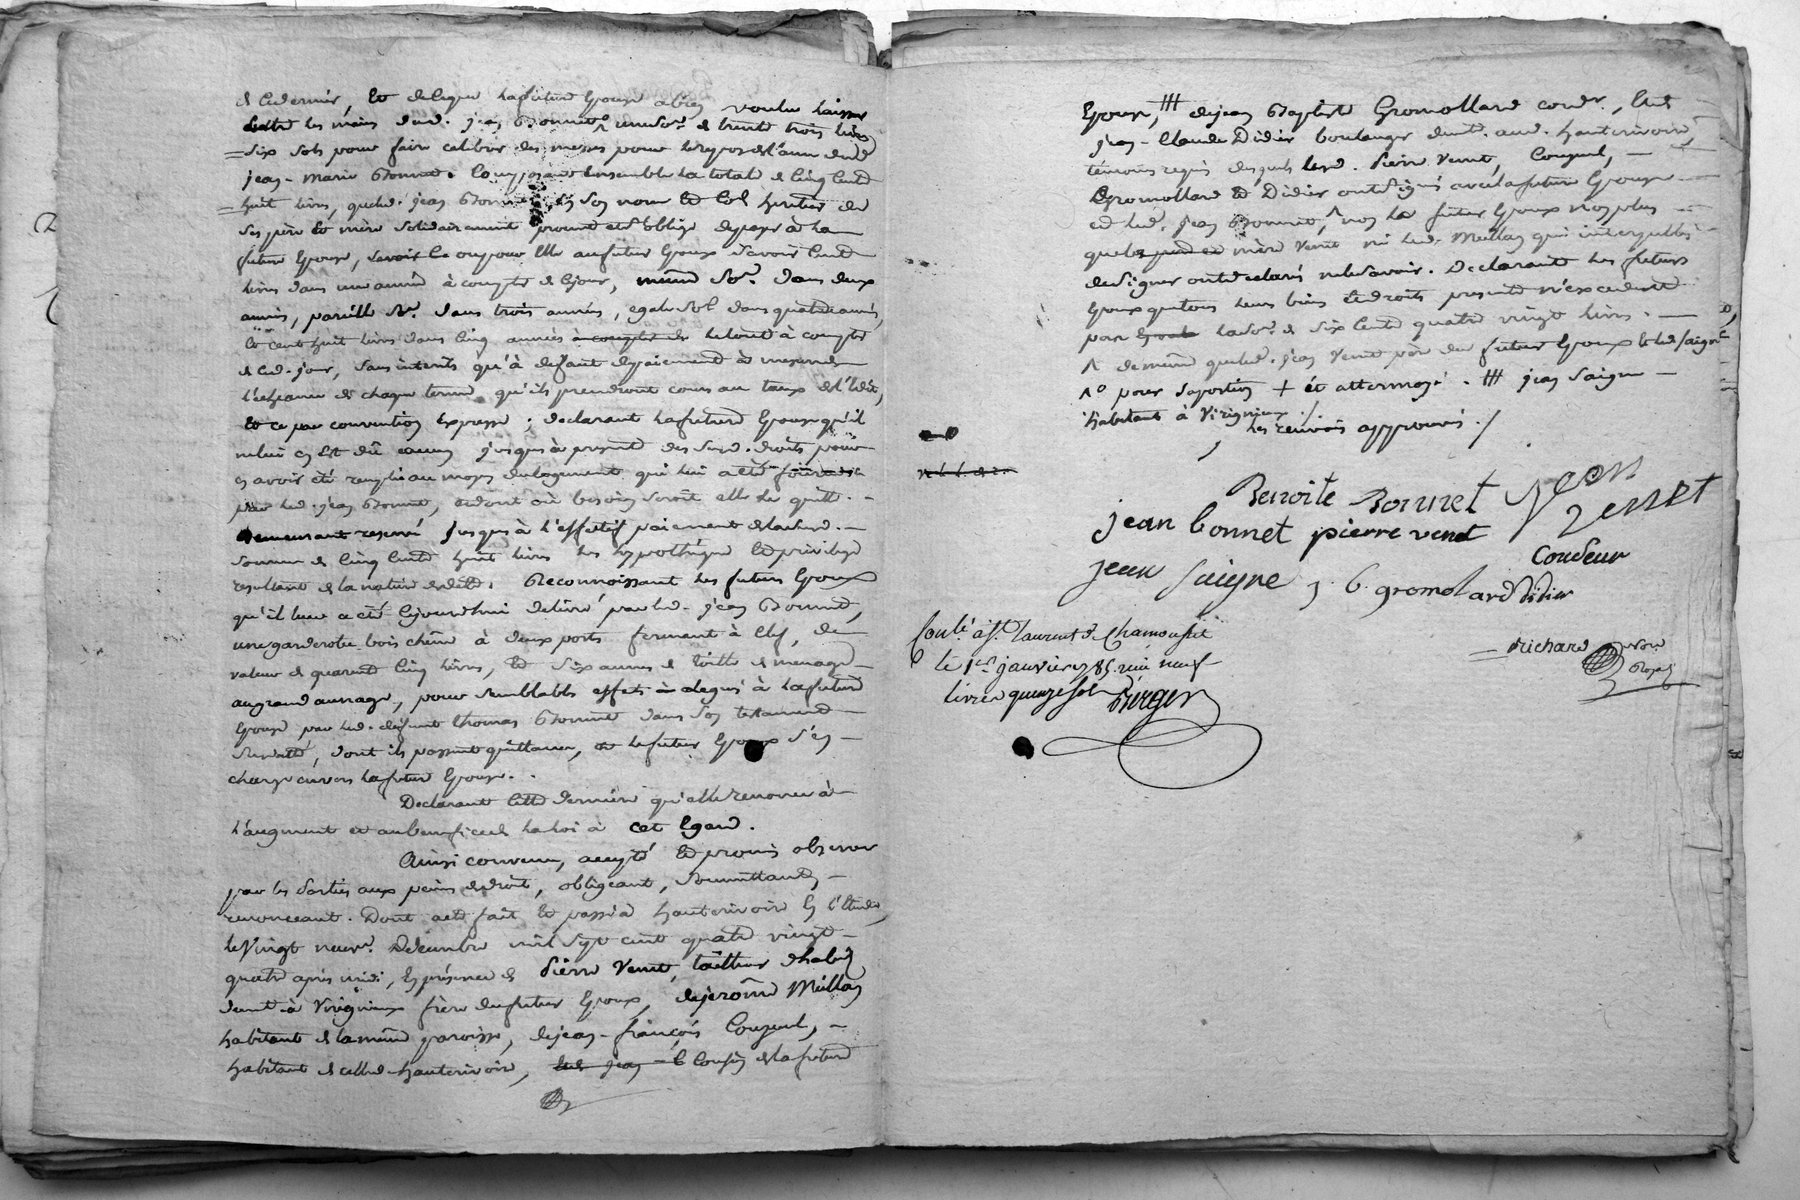 de ce dernier, et de lequel la future Epouse a bien voulu laisser
entre les mains dud. jean Bonnet une so.e de trente trois livres
six sols pour faire celebrer des messes pour le repos de l'ame dud
jean-marie Bonnet. Composant ensemble la totale de Cinq Cent
huit livres, que led. jean Bonnet en son nom et Col heritier de
ses père et mère solidairement promet et s'oblige de payer à la
future Epouse, savoir le ou pour Elle au futur Epoux s'avoir Cent
livres dans une année à compter de ce jour, même So.e dans deux
années, pareille So.e dans trois années, egale So.e dans quatre années,
et cent huit livres dans Cinq années à compter de le tout à compter
de ced. jour, sans interets qu'à deffaut de paiement à mesure
l'echeance de chaque terme qu'ils prendront cours au taux de l'Edit,
Et ce par convention Expresse; declarant la future Epouse qu'il
ne lui en Est dû aucun jusques à present des sud. droits pour
en avoir été remplie au moyen du logement qui lui a été fourni
par led. jean Bonnet, et dont où besoin seroit elle le quitte. -
Demeurant reservé jusques à l'effectif paiement de lad. -
somme de Cinq Cent huit livres les hypothéque et privilege
resultant de la nature de dette. Reconnoissant les futurs Epoux
qu'il leur a été Cejourdhui délivré par led. jean Bonnet,
une garderobe bois chêne à deux portes fermant à Clef, de
valeur de quarante Cinq livres, et six aunes de toille de menage
au grand aunage, pour semblables effets légués à la future
Epouse par led. deffunt thomas Bonnet dans son testament
susdatté, dont ils passent quittance, et le futur Epoux s'en -
charge envers la future Epouse. -
Declarant Cette derniere qu'elle renonce à
l'augment et au benefice de la loi à cet Egard.
Ainsi convenu, accepté Et promis observer
par les Parties aux peines de droit, obligeant, soumettant, -
renonceant. Dont acte fait Et passé à hauterivoire En l'Etude,
le Vingt neuv.e Decembre mil sept cent quatre vingt -
quatre après midi, En présence de Pierre Venet, tailleur d'habit
dem.t à Virigneux frère du futur Epoux, de jerôme Meillan
habitant de la même paroisse, de jean-françois Couzeul, -
habitant de celle d'hauterivoire, Cousin de la future
Epouse, # de jean Baptiste Gromollard cord.r, Et de
jean-Claude Didier boulanger dem.t aud. hauterivoire,
témoins requis desquels lesd. Pierre Venet, Couzeul, -
Gromollard Et Didier ont signés avec la future Epouse -
et led. jean Bonnet, ^ non le futur Epoux non plus -
que sa mère Venet ni led. Meillan qui interpellés -
de signer ont declarés ne le savoir. Declarant les futurs
Epoux que tous leurs biens et droits presents n'excedent
pas la So.e de six Cent quatre vingt livres. -
^ de même que led. jean Venet père du futur Epoux et led. saigne
^o pour sa portion + et attermoyé. # jean Saigne -
habitant à Virigneux ./.
les renvois approuvés ./
Benoite Bonnet Jean Venet
jean bonnet pierre venet
Couseur
jean Saigne j. b. gromolard Didier
Conlé. à St. Laurent de Chamousset
le 1er janvier 1785. reçu neuf
livres quinze sols Berger
Richard Not.re Royal